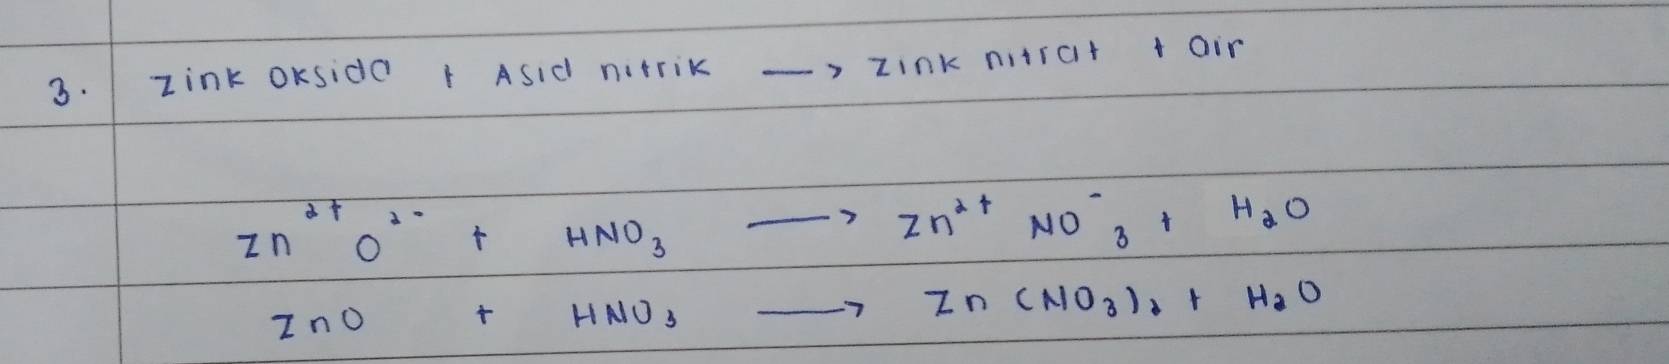 3. Zink oksida + Asid nitrik → zink nitrat + air
Zn²⁺ O²⁻ + HNO₃ → Zn²⁺ NO⁻₃ + H₂O
ZnO + HNO₃ → Zn (NO₃)₂ + H₂O